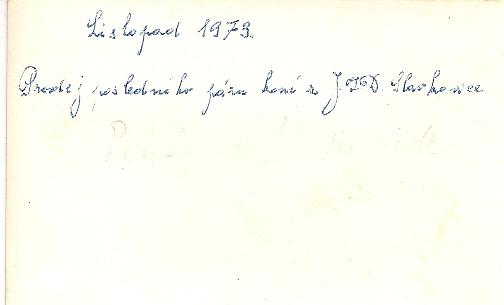 Listopad 1973.
Prodej posledního páru koní z JZD. Slavkovice